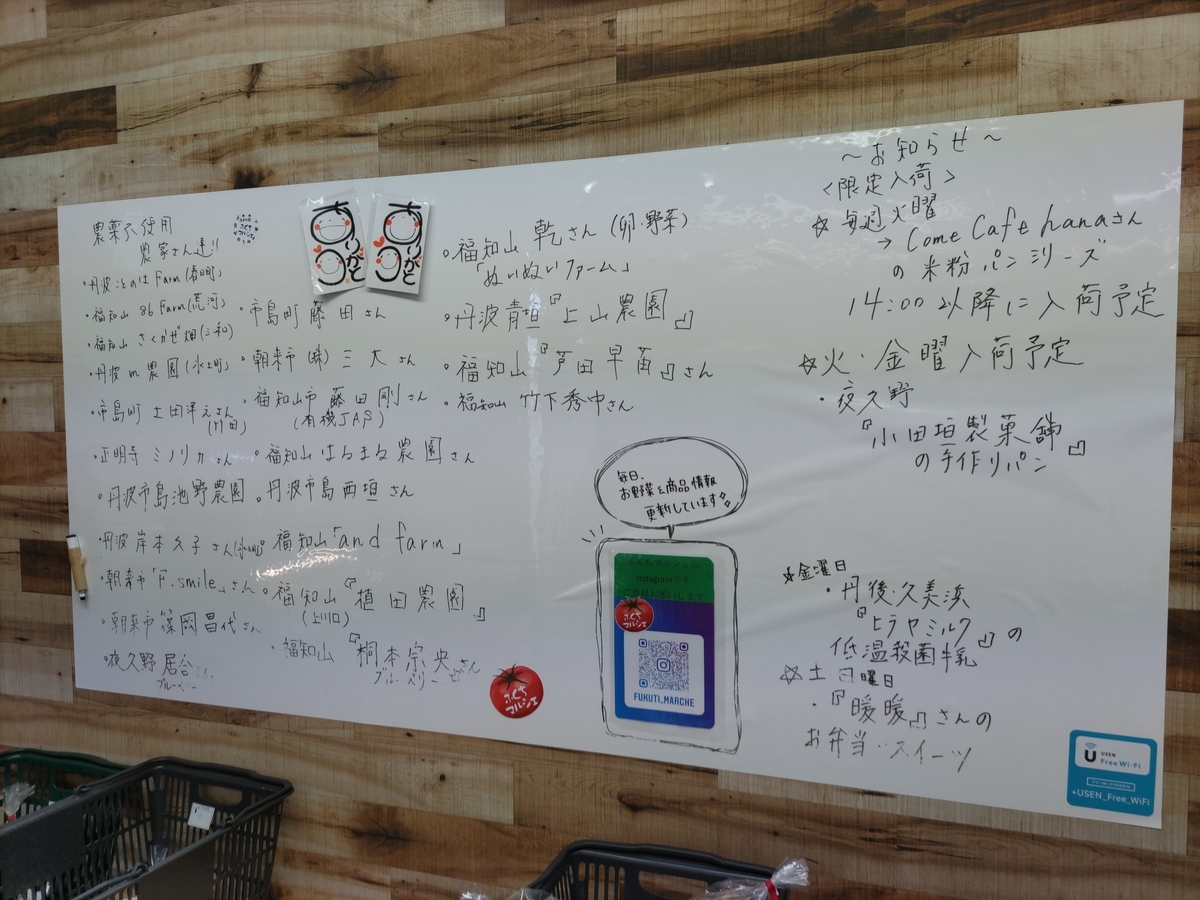 農薬不使用
農家さん達り
・丹波ことのは Farm (春日町)
・福知山 86 Farm (荒河)
・福知山 さくかぜ畑 (三和)
・丹波 m 農園 (氷上町)
・市島町 土田洋えさん
・正明寺 ミノリカさん
・丹波市島池野農園
・丹波 岸本久子さん
・朝来市「F.smile」さん
・朝来市 篠岡昌代さん
・夜久野 居合
ブルーベリー
・市島町 藤田さん
・朝来市 (株) 三大さん
・福知山市 藤田剛さん
(有機JAS)
・福知山 はるまな農園さん
・丹波市島西垣さん
・福知山「and farm」
・福知山『植田農園』
(上川口)
・福知山『桐本宗央さん
ブルーベリー
ありがと
ありがと
・福知山 乾さん (卵・野菜)
「ぬいぬいファーム」
・丹波青垣『上山農園』
・福知山『芦田早苗』さん
・福知山 竹下秀中さん
毎日、
お野菜&商品情報
更新しています
ふくちマルシェの
instagramです
ご登録お願いします
ふくち
マルシェ
FUKUTI_MARCHE
ふくち
マルシェ
〜お知らせ〜
<限定入荷>
☆毎週火曜
→ Come Cafe hanaさん
の米粉パンシリーズ
14:00以降に入荷予定
☆火・金曜入荷予定
・夜久野
『小田垣製菓舗』
の手作りパン
☆金曜日
・丹後・久美浜
『ヒラヤミルク』の
低温殺菌牛乳
☆土日曜日
・『暖暖』さんの
お弁当・スイーツ
USEN
Free Wi-Fi
USEN_Free_WiFi